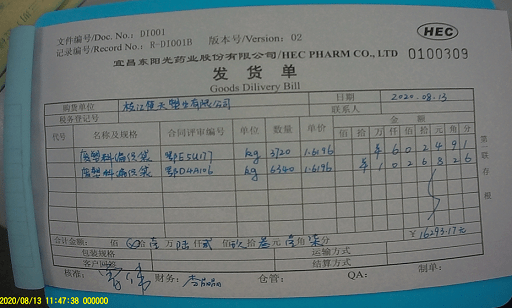 文件编号/Doc. No.: DI001
记录编号/Record No.: R-DI001B 版本号/Version: 02
HEC
宜昌东阳光药业股份有限公司/HEC PHARM CO., LTD 0100309
发货单
Goods Dilivery Bill
购货单位 日期 2020.08.13
税务登记号 联系人
代号 名称及规格 合同评审编号 单位 数量 单价 金额
佰 拾 万 仟 佰 拾 元 角 分
废塑料编织袋 鄂E5U177 kg 3720 1.6196 ¥ 6 0 2 4 9 1
废塑料编织袋 鄂D4A106 kg 6340 1.6196 ¥ 1 0 2 6 8 2 6
第 联 存根
¥ 16293.17元
合计金额: 佰 拾 壹万 陆仟 贰佰 玖拾 叁元 壹角 柒分
包装规格 运输方式
客户回签 结算方式
核准: 财务: 仓管: QA: 制单:
2020/08/13 11:47:38 000000